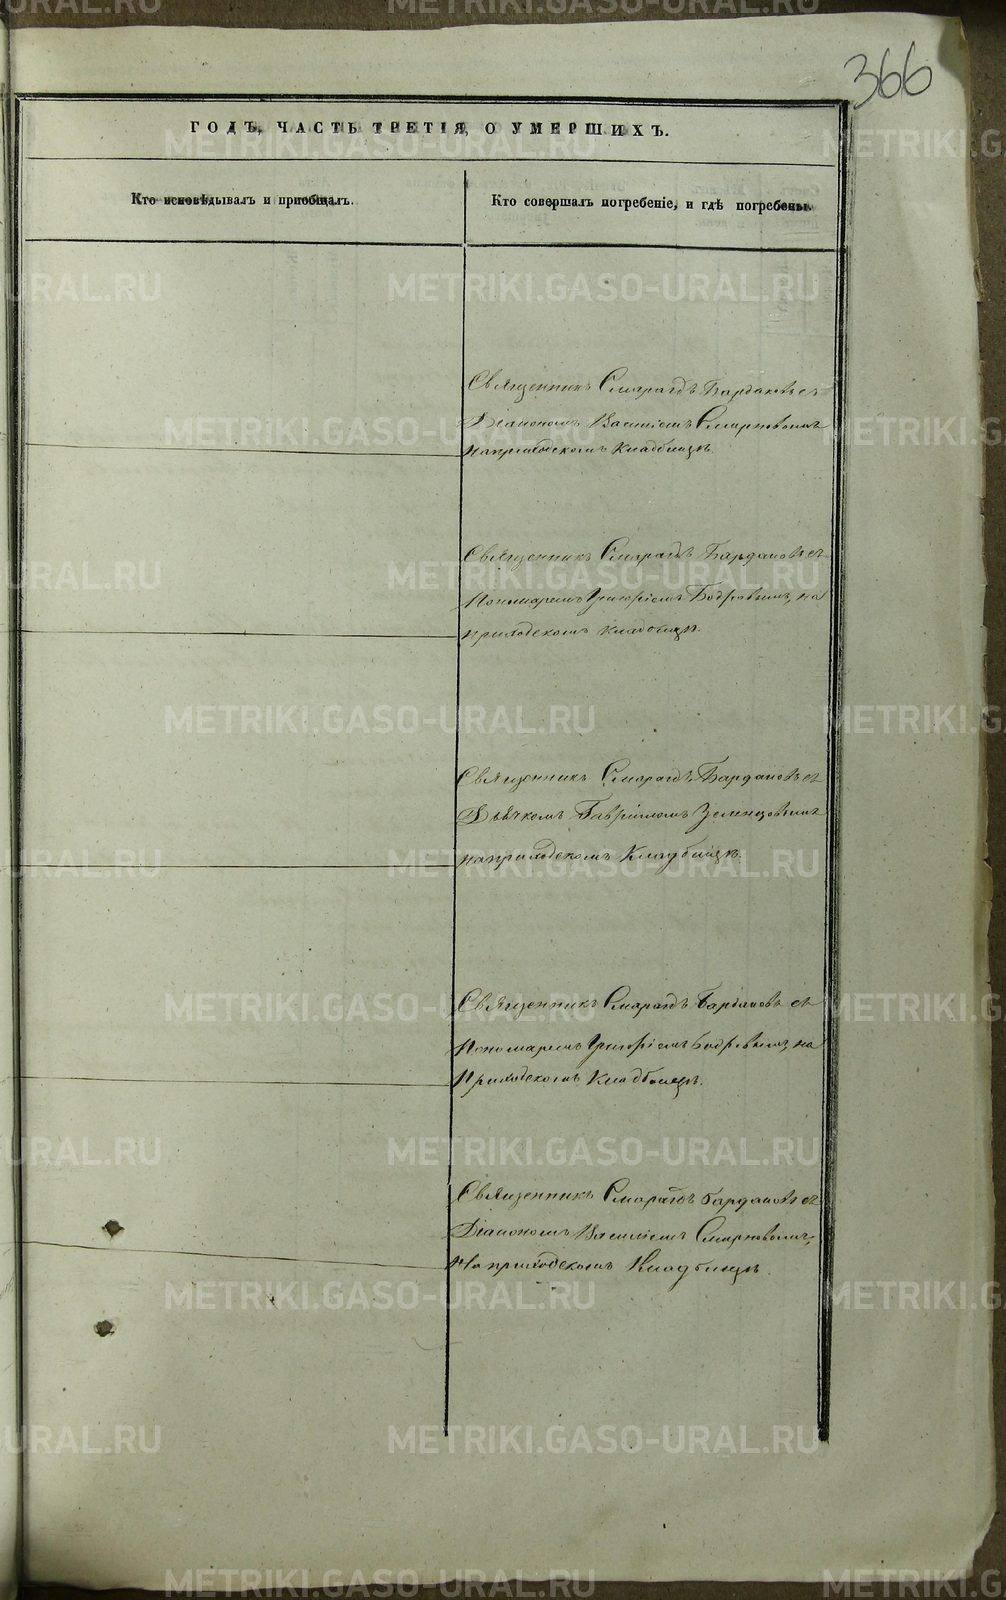 366
ГОДЪ, ЧАСТЬ ТРЕТІЯ, О УМЕРШИХЪ.
Кто исповѣдывалъ и пріобщалъ.
Кто совершалъ погребеніе, и гдѣ погребены.
Священникъ Смарагдъ Бардаковъ съ
Діакономъ Василіемъ Смирновымъ
на приходскомъ кладбищѣ.
Священникъ Смарагдъ Бардаковъ съ
Пономаремъ Григоріемъ Бодровымъ, на
приходскомъ кладбищѣ.
Священникъ Смарагдъ Бардаковъ съ
Дьячкомъ Гавріиломъ Зеленцовымъ
на приходскомъ Кладбищѣ.
Священникъ Смарагдъ Бардаковъ съ
Пономаремъ Григоріемъ Бодровымъ на
Приходскомъ Кладбищѣ.
Священникъ Смарагдъ Бардаковъ съ
Діакономъ Василіемъ Смирновымъ,
На приходскомъ Кладбищѣ.
METRIKI.GASO-URAL.RU